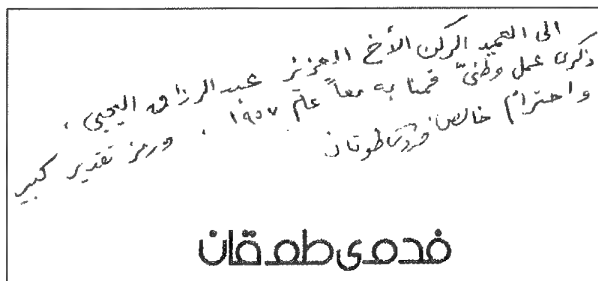 الى العميد الركن الأخ العزيز عبد الرزاق اليحيى ،
ذكرى عمل وطنيّ قمنا به معاً عام ١٩٥٧ . ورمز تقدير كبير
واحترام خالص فدوى طوقان
فدوى طوقان